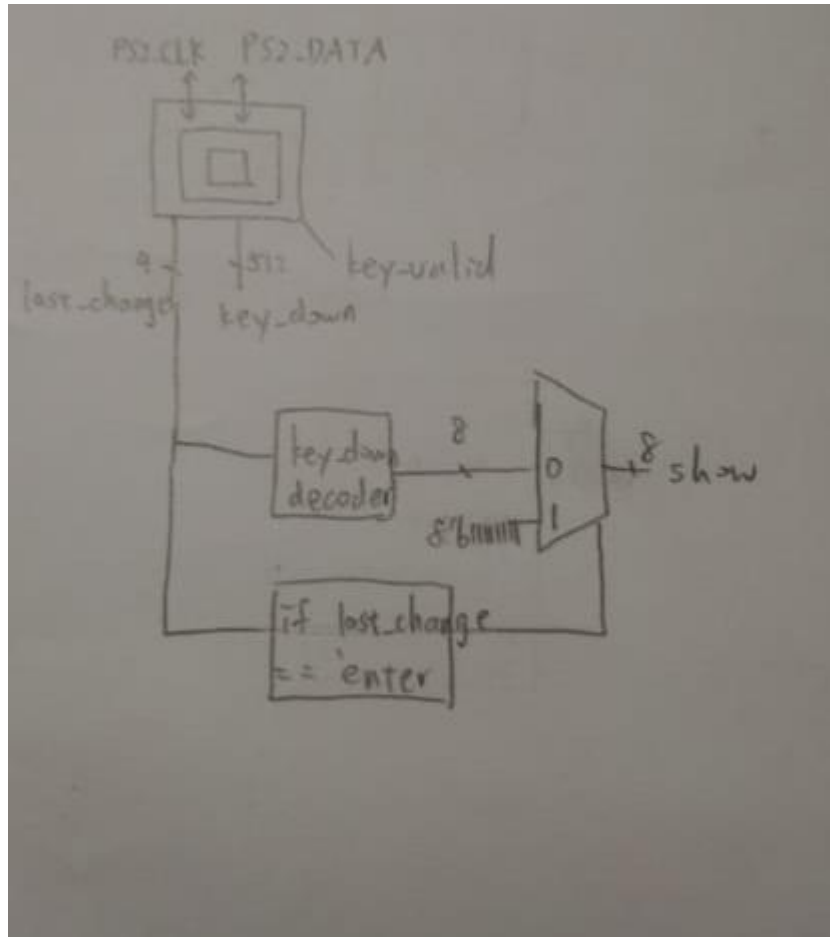 PS2_CLK PS2_DATA
9 512 key_valid
last_change key_down
key_down
decoder
8
0
8 show
8'b11111111
1
if last_change
== `enter